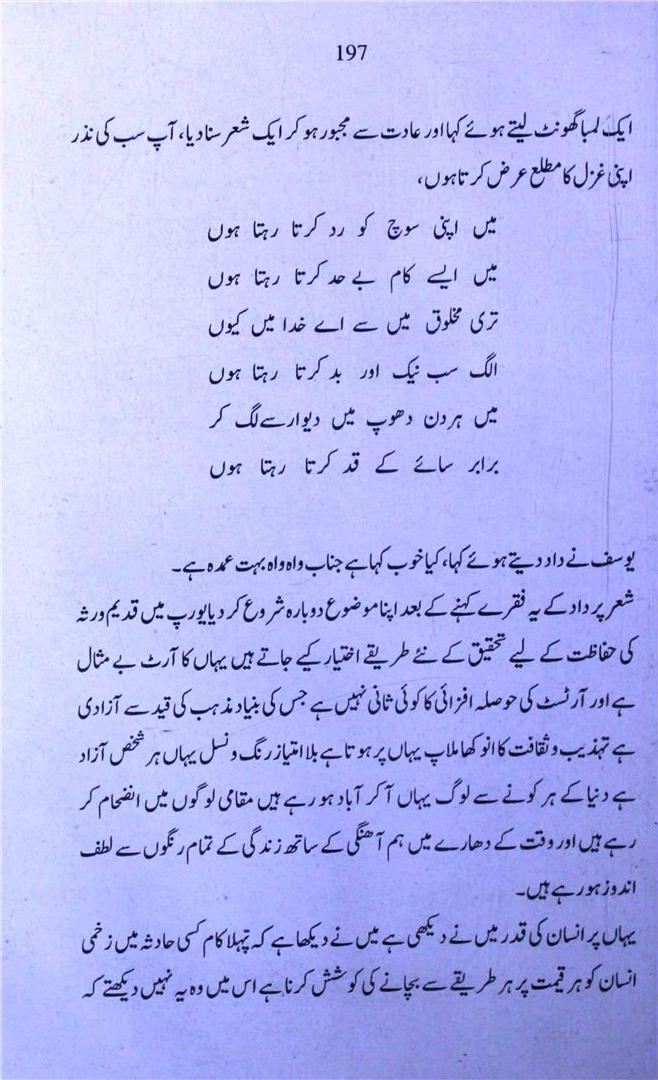 197
ایک لمبا گھونٹ لیتے ہوئے کہا اور عادت سے مجبور ہو کر ایک شعر سنا دیا، آپ سب کی نذر
اپنی غزل کا مطلع عرض کرتا ہوں،
میں اپنی سوچ کو رد کرتا رہتا ہوں
میں ایسے کام بے حد کرتا رہتا ہوں
تری مخلوق میں سے اے خدا میں کیوں
الگ سب نیک اور بد کرتا رہتا ہوں
میں ہر دن دھوپ میں دیوار سے لگ کر
برابر سائے کے قد کرتا رہتا ہوں
یوسف نے داد دیتے ہوئے کہا، کیا خوب کہا ہے جناب واہ واہ بہت عمدہ ہے۔
شعر پر داد کے یہ فقرے کہنے کے بعد اپنا موضوع دوبارہ شروع کر دیا یورپ میں قدیم ورثہ
کی حفاظت کے لیے تحقیق کے نئے طریقے اختیار کیے جاتے ہیں یہاں کا آرٹ بے مثال
ہے اور آرٹسٹ کی حوصلہ افزائی کا کوئی ثانی نہیں ہے جس کی بنیاد مذہب کی قید سے آزادی
ہے تہذیب و ثقافت کا انوکھا ملاپ یہاں پر ہوتا ہے بلا امتیاز رنگ و نسل یہاں ہر شخص آزاد
ہے دنیا کے ہر کونے سے لوگ یہاں آ کر آباد ہو رہے ہیں مقامی لوگوں میں انضحام کر
رہے ہیں اور وقت کے دھارے میں ہم آھنگی کے ساتھ زندگی کے تمام رنگوں سے لطف
اندوز ہو رہے ہیں۔
یہاں پر انسان کی قدر میں نے دیکھی ہے میں نے دیکھا ہے کہ پہلا کام کسی حادثہ میں زخمی
انسان کو ہر قیمت پر ہر طریقے سے بچانے کی کوشش کرنا ہے اس میں وہ یہ نہیں دیکھتے کہ